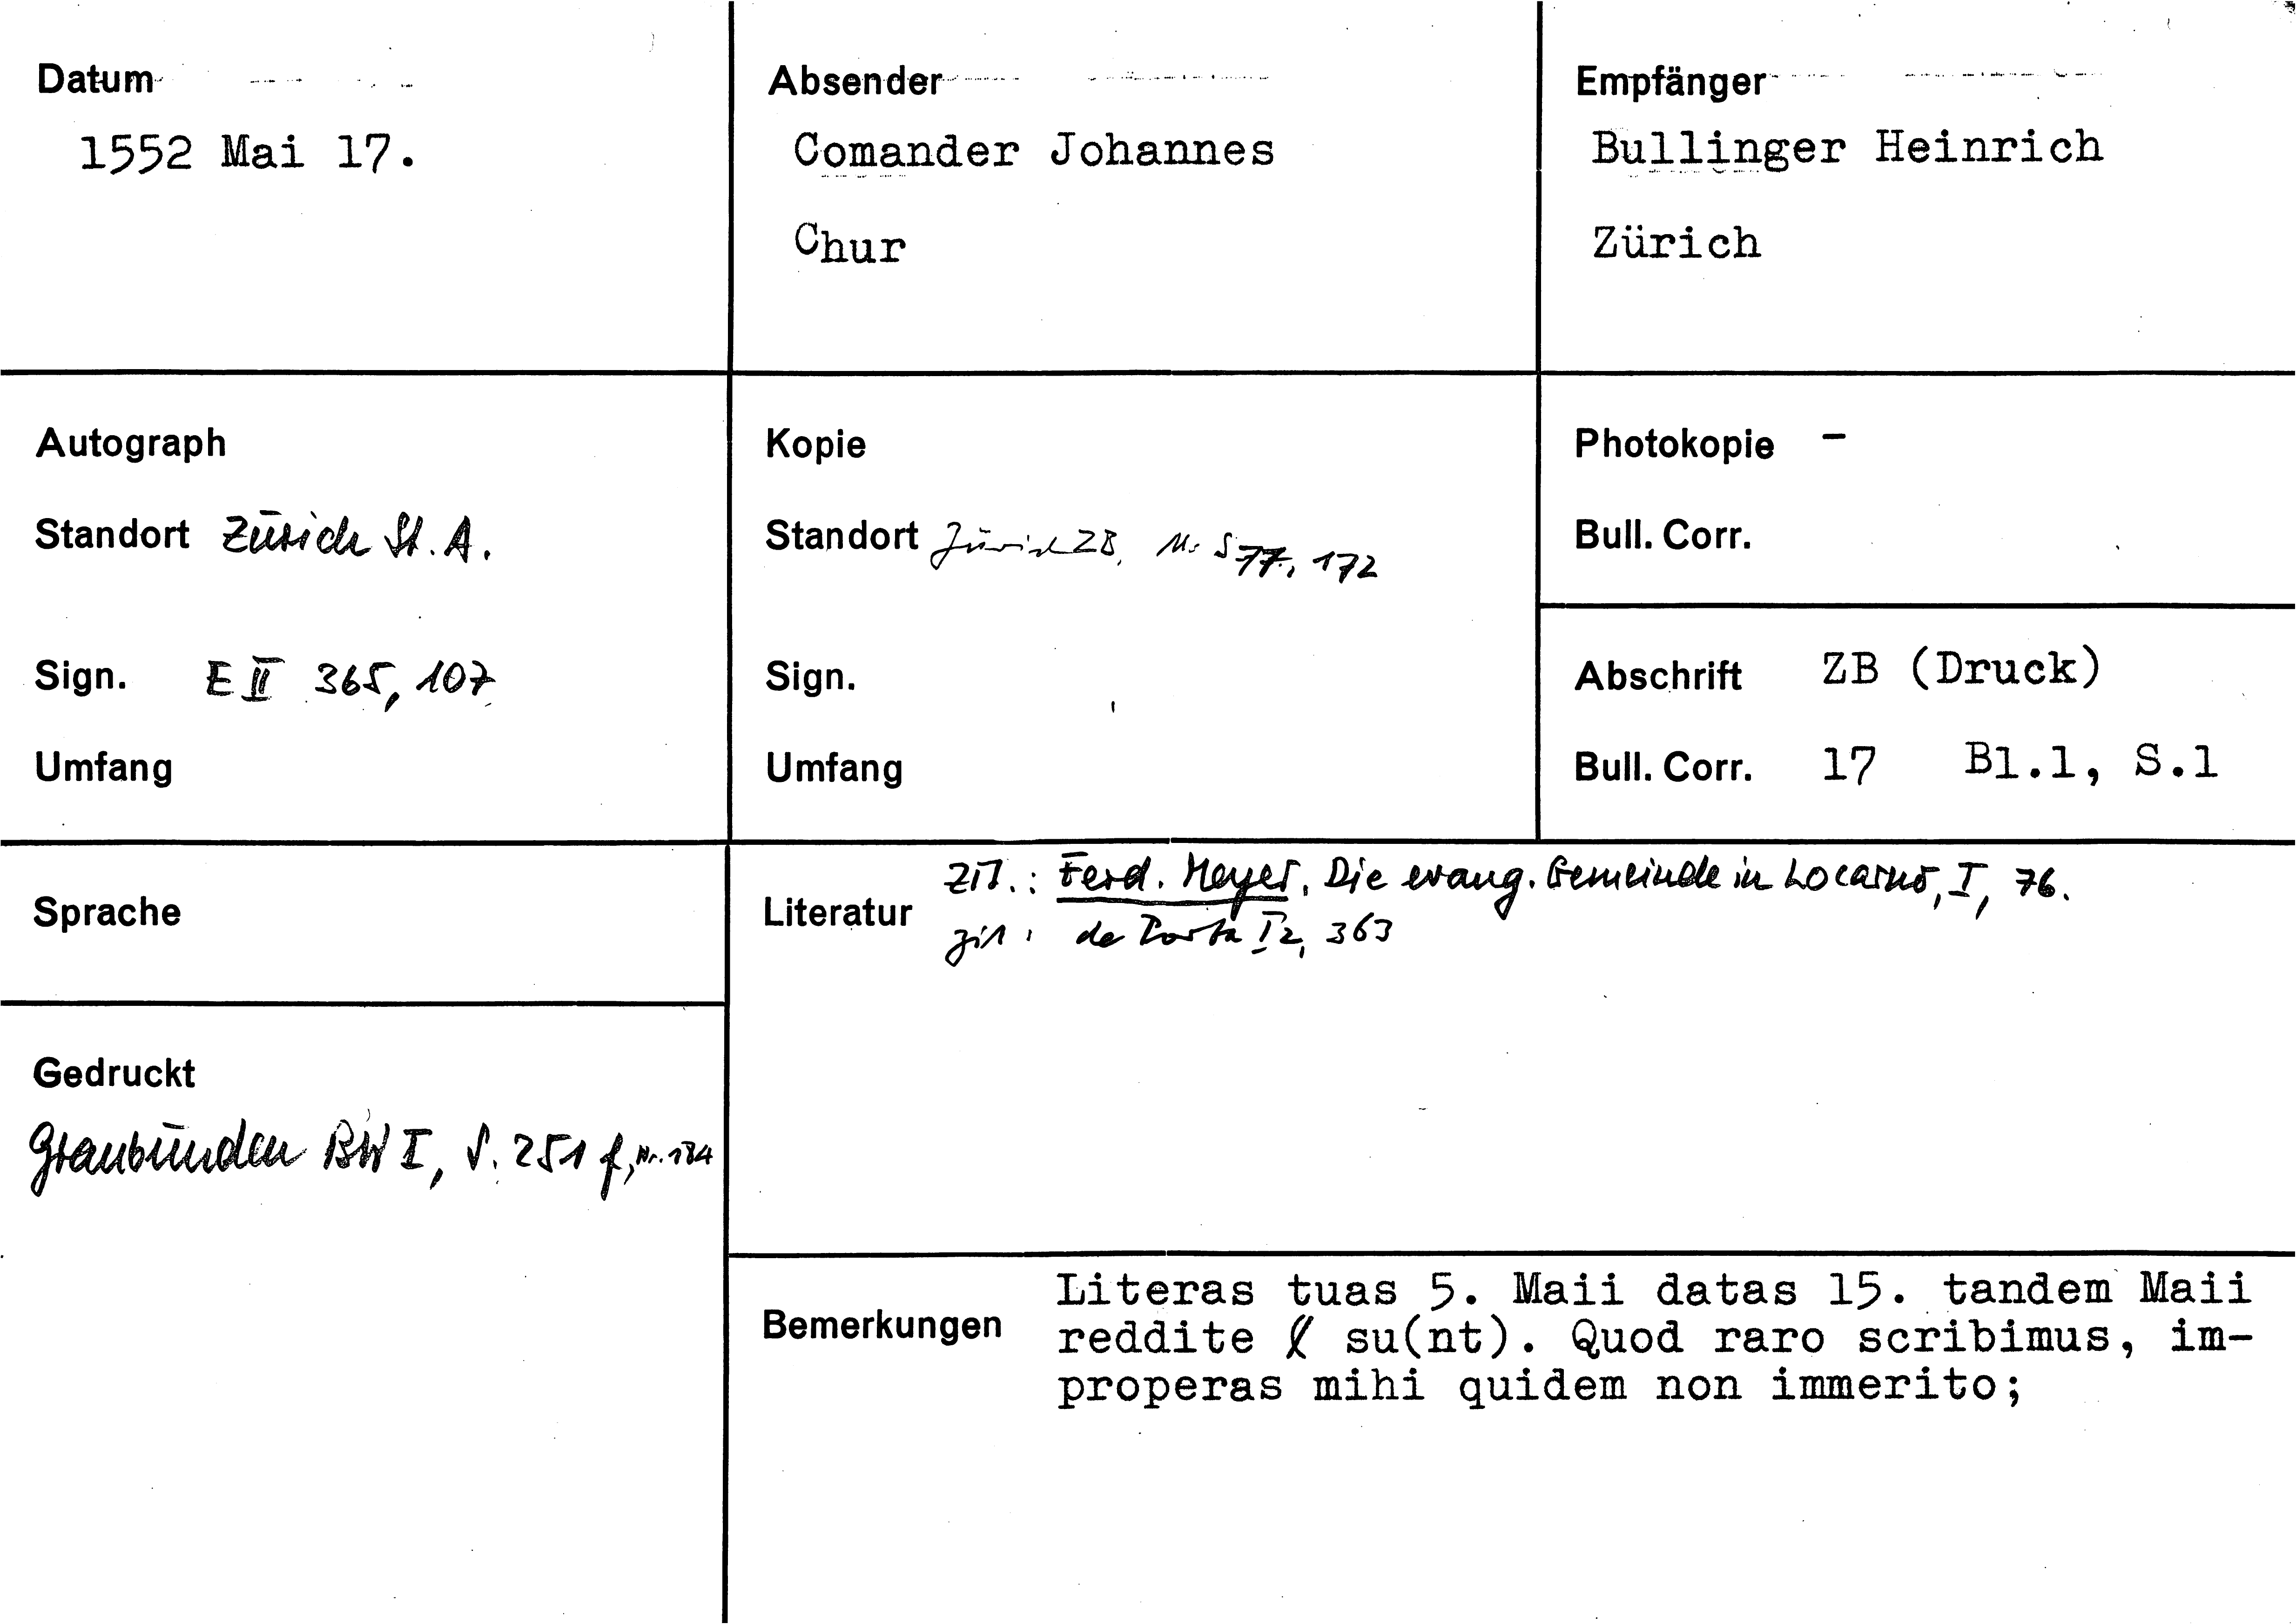 Datum
1552 Mai 17.
Absender
Comander Johannes
Chur
Empfänger
Bullinger Heinrich
Zürich
Autograph
Standort Zürich St. A.
Sign. E II 365, 107
Umfang
Kopie
Standort Zürich ZB, Ms S 77, 172
Sign.
Umfang
Photokopie -
Bull. Corr.
Abschrift ZB (Druck)
Bull. Corr. 17 Bl.1, S.1
Sprache
Gedruckt
Graubünden BW I, S. 251 f, Nr. 184
Literatur
zit.: Ferd. Meyer, Die evang. Gemeinde in Locarno, I, 76.
zit: de Porta I 2, 363
Bemerkungen
Literas tuas 5. Maii datas 15. tandem Maii
reddite su(nt). Quod raro scribimus, im-
properas mihi quidem non immerito;